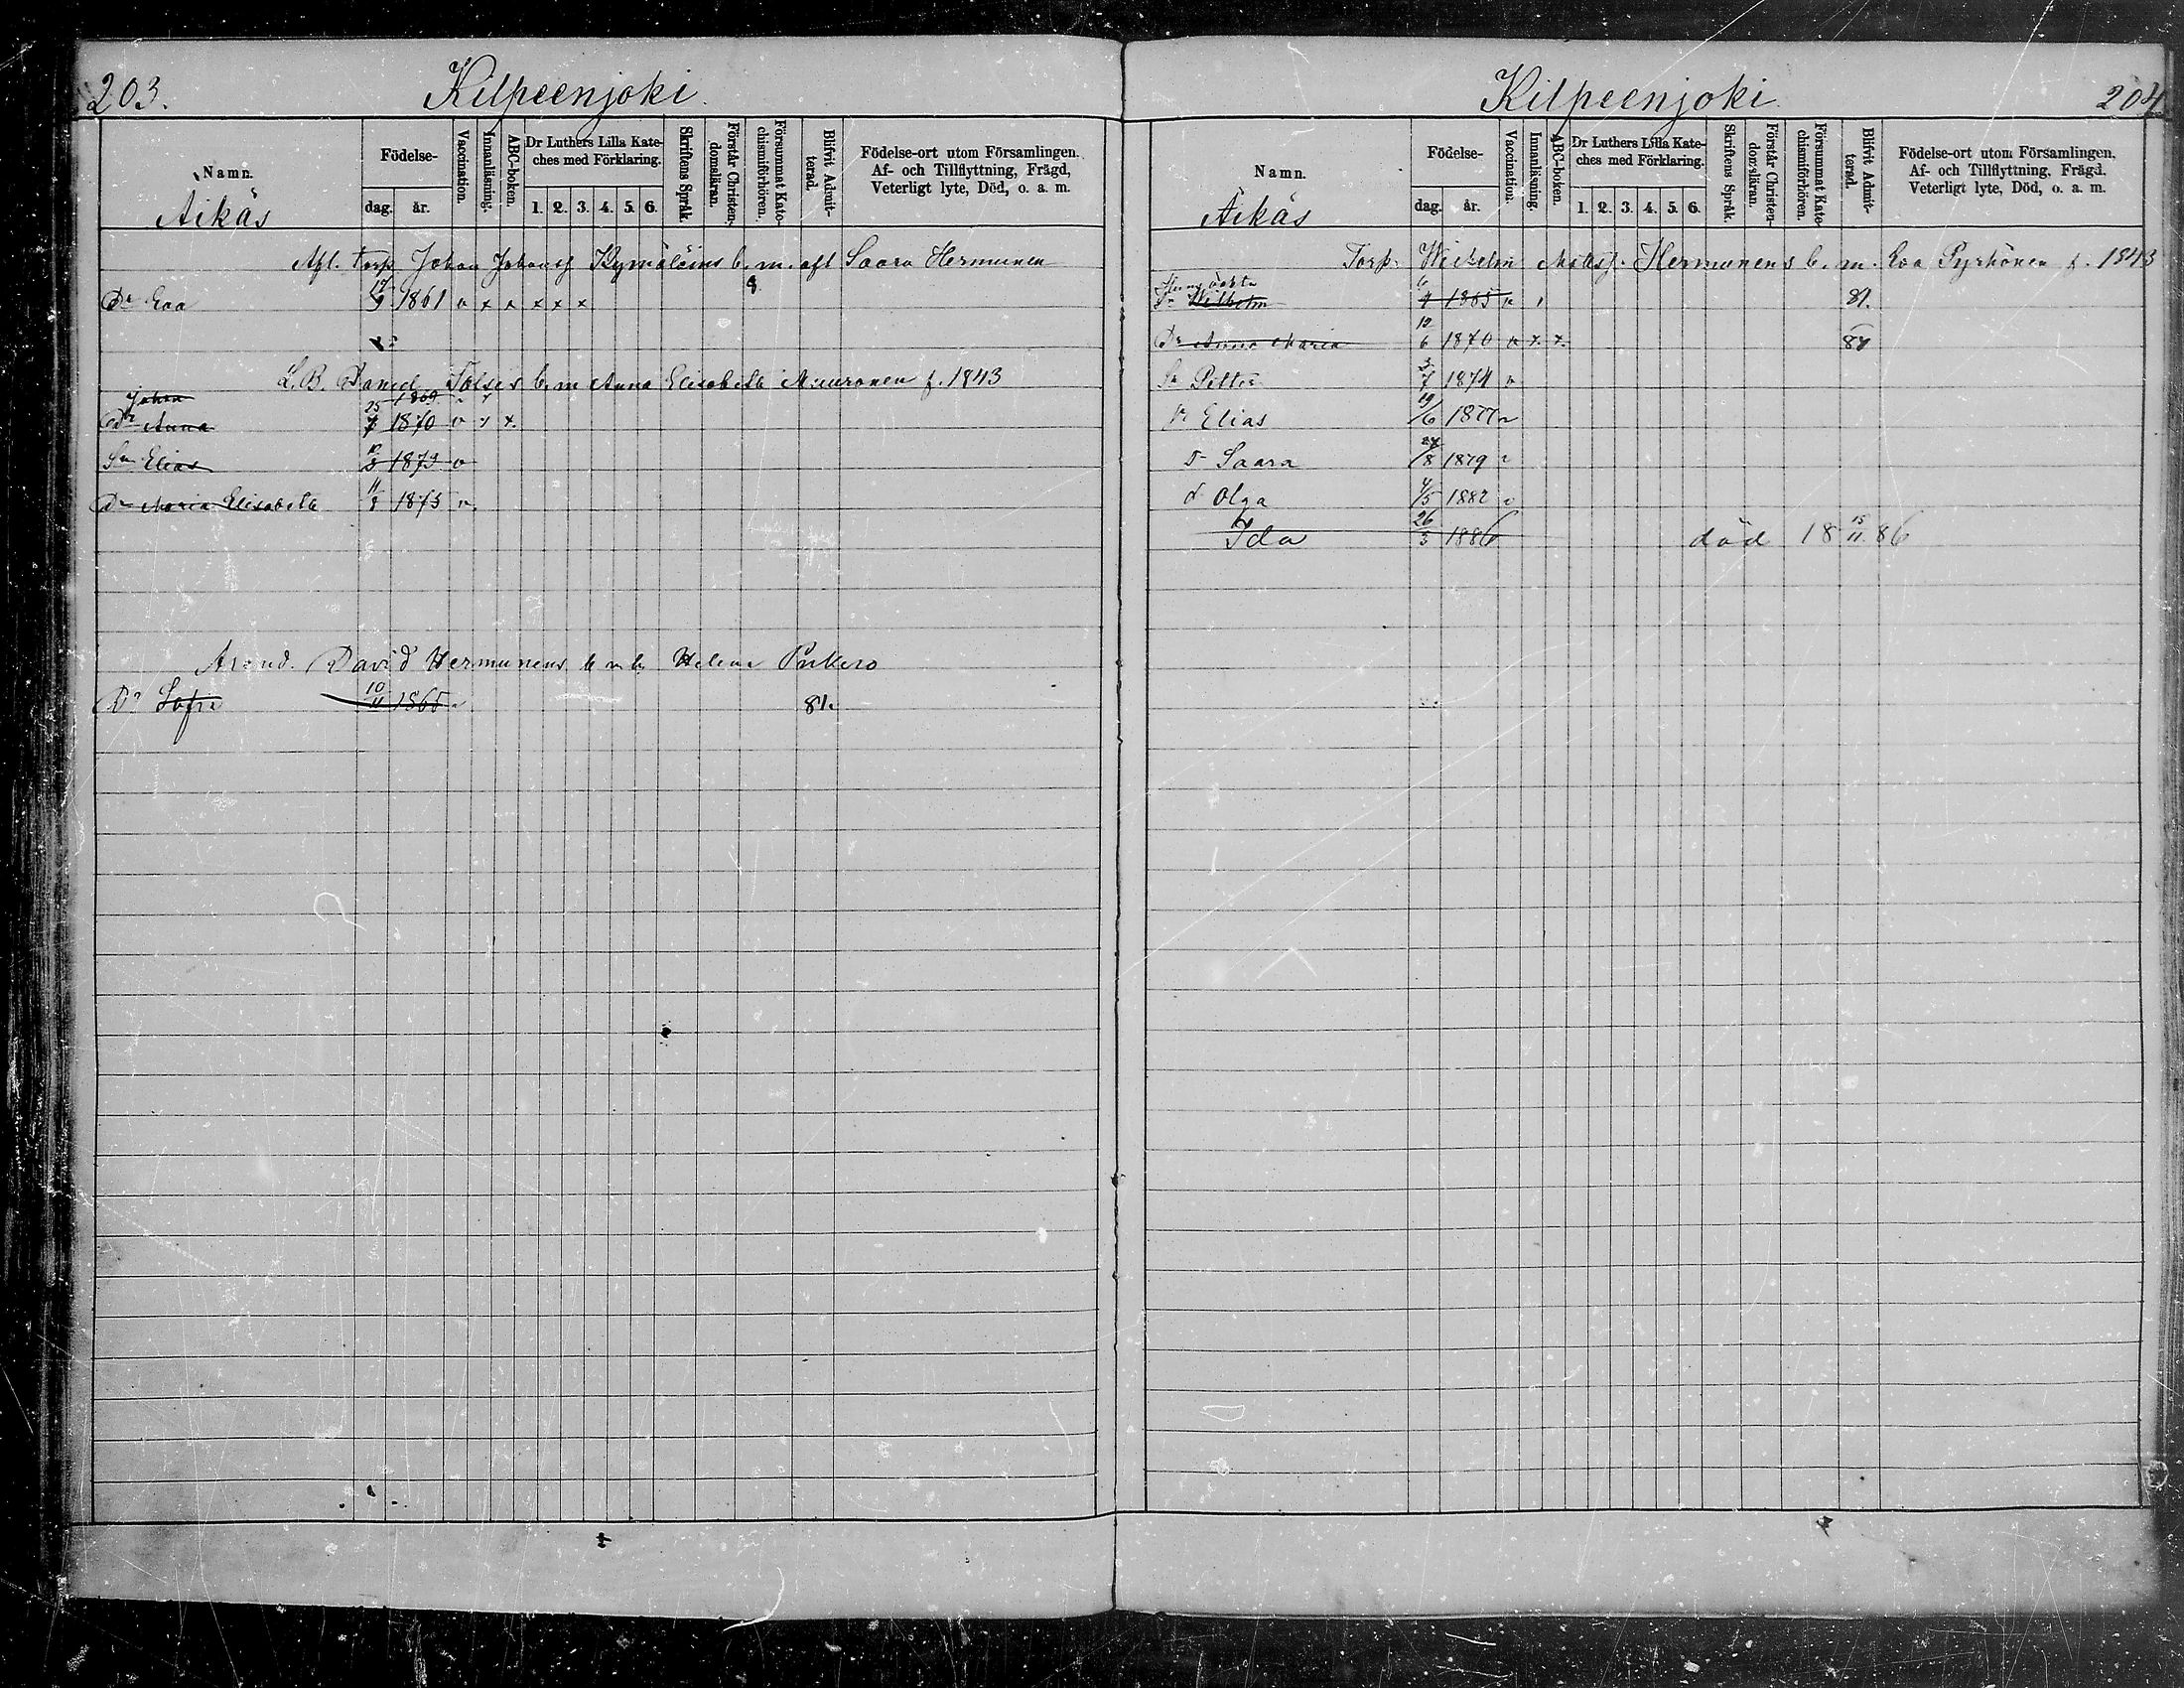 203.
Kilpeenjoki.
Namn.
Födelse-
dag.
år.
Vaccination.
Innanläsning.
ABC-boken.
Dr Luthers Lilla Kate-
ches med Förklaring.
1. 2. 3. 4. 5. 6.
Skriftens Språk.
Förstår Christen-
domsläran.
Försummat Kate-
chismiförhören.
Blifvit Admit-
terad.
Födelse-ort utom Församlingen.
Af- och Tillflyttning, Frägd,
Veterligt lyte, Död, o. a. m.
Äikäs
Afl. torp. Johan Johansf Kymäläins b. m. afl Saara Hermunen
Dr Eva 17/9 1861 v x x x x x
L. B. Daniel b. m Anna Elisabeth Muuronen f. 1843
Johan 1869
Dr Anna 25/7 1870 v x x
Sn Elias 1873 v
Dr Maria Elisabeth 11/8 1875 v
Arend. David Hermunens b m h Helena
Dr Sofia 10/11 1865 81.
204
Kilpeenjoki
Namn.
Födelse-
dag.
år.
Vaccination.
Innanläsning.
ABC-boken.
Dr Luthers Lilla Kate-
ches med Förklaring.
1. 2. 3. 4. 5. 6.
Skriftens Språk.
Förstår Christen-
domsläran.
Försummat Kate-
chismiförhören.
Blifvit Admit-
terad.
Födelse-ort utom Församlingen.
Af- och Tillflyttning, Frägd.
Veterligt lyte, Död, o. a. m.
Äikäs
Torp. Wilhelm Matsf. Hermunens b. m. Eva Pyrhönen f. 1843
Sn Wilhelm 6/4 1865 v 81.
Dr Anna Maria 12/6 1870 v x x
Sn Petter 3/7 1874 v
Sn Elias 19/6 1877 v
Dr Saara 24/8 1879 v
d Olga 4/5 1882 v
Ida 26/3 1886 död 18 15/11 86